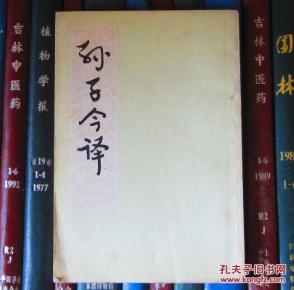 孙子今译
吉林中医药
1-6
1992
植物学报
19
1-4
1977
吉林中医药
1-6
1989
R2
J
园林
198
R2
J
孔夫子旧书网